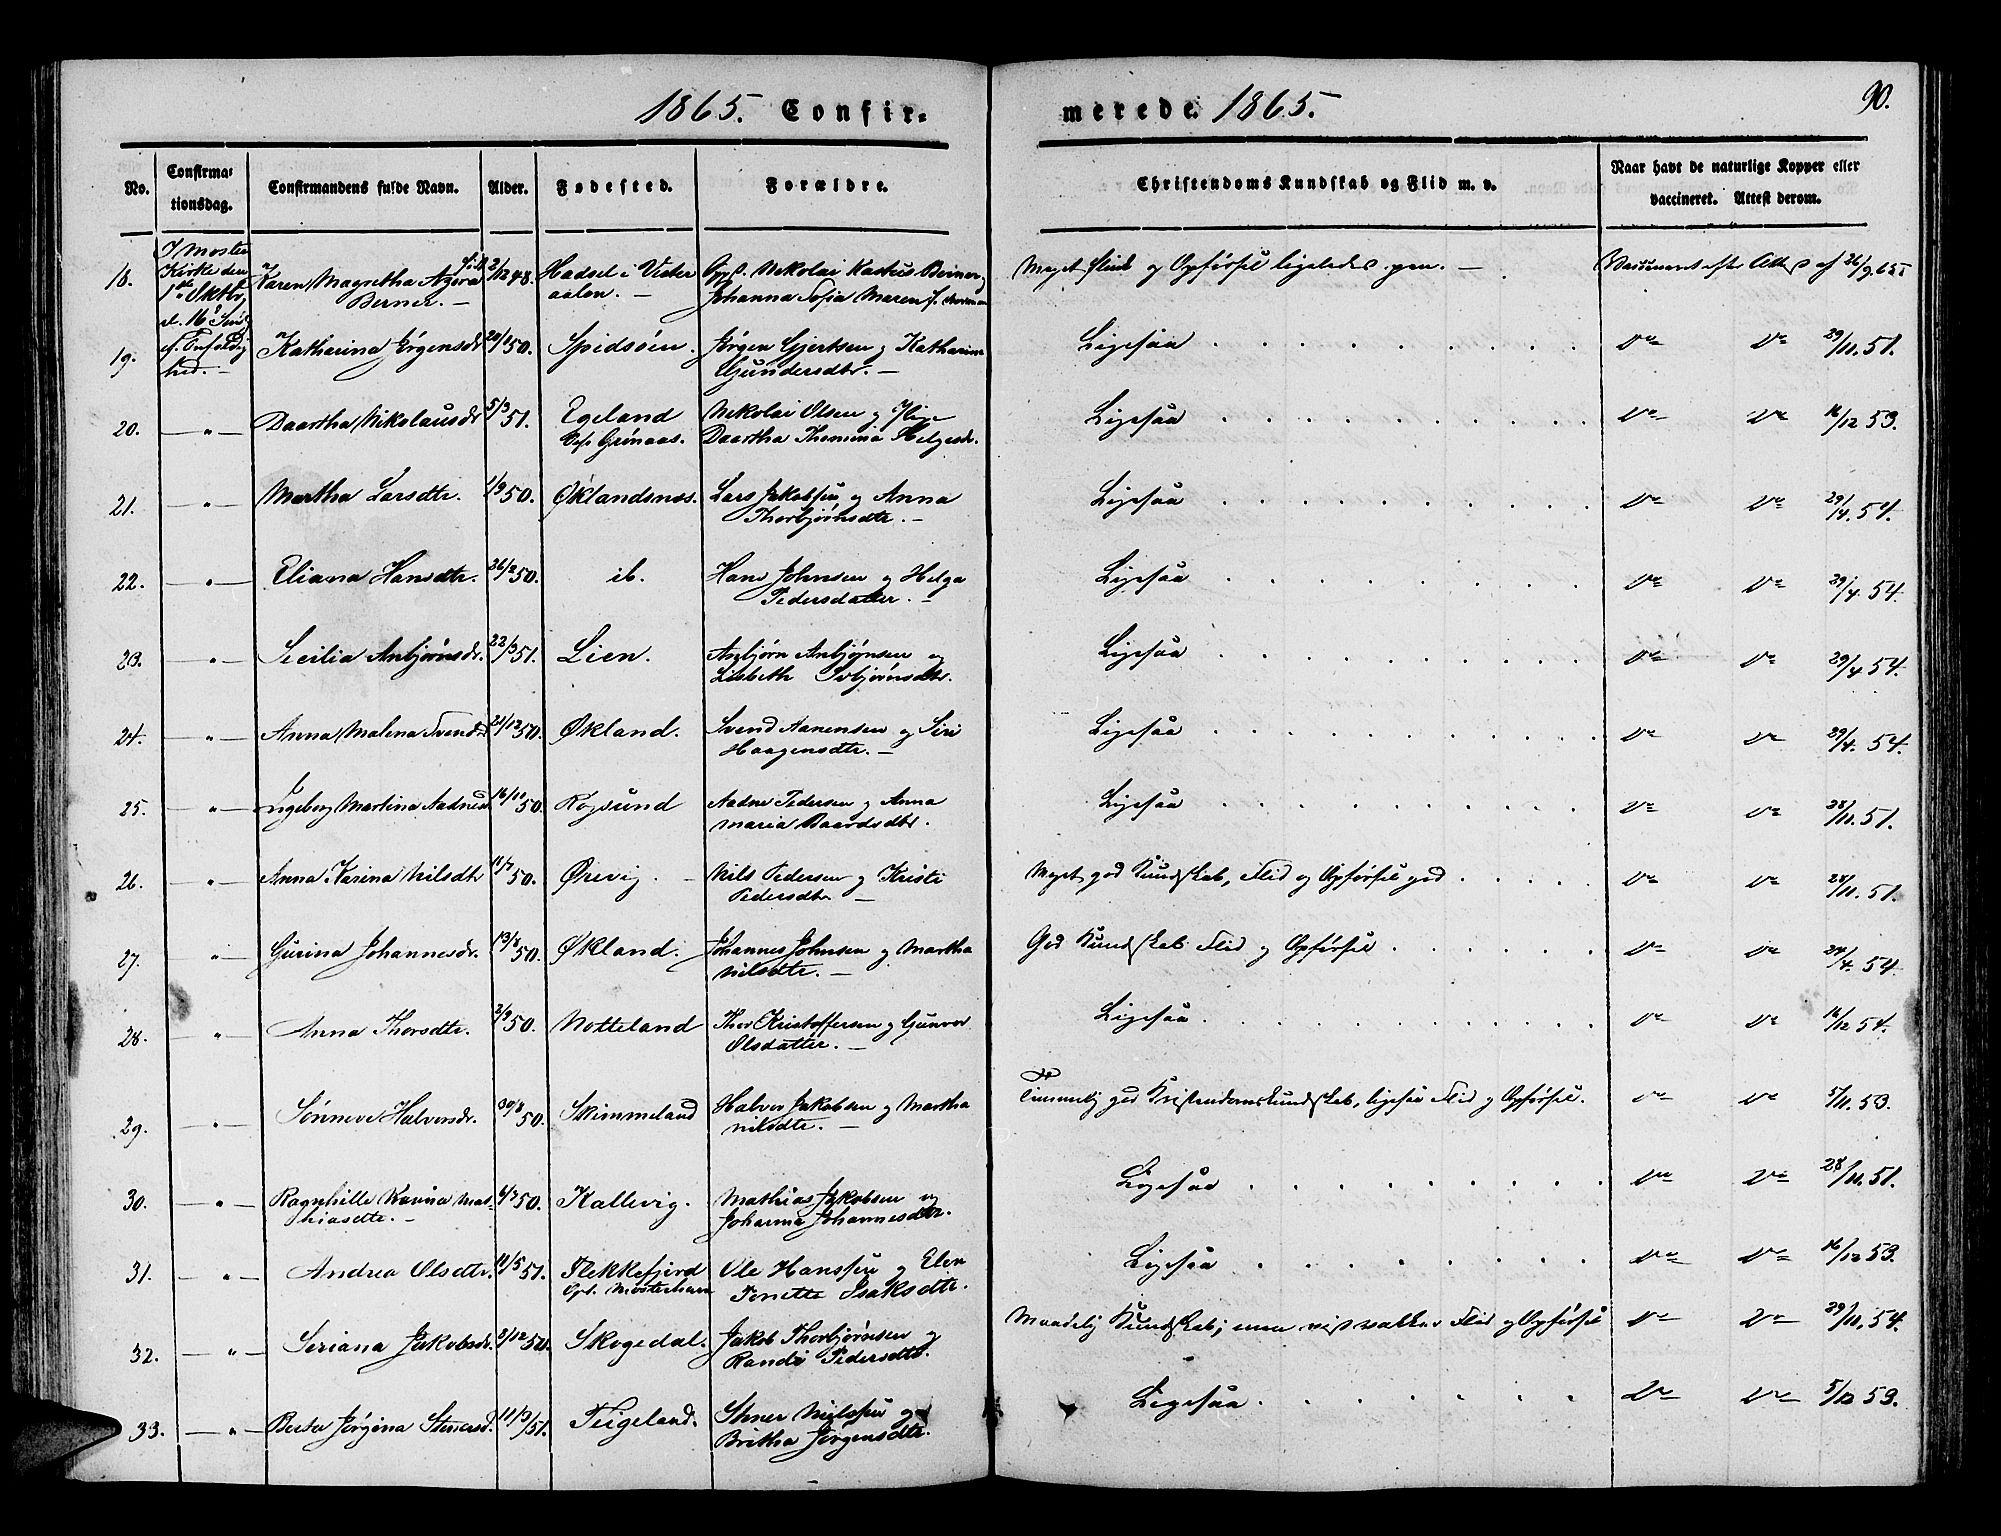 1865. Confir-
merede 1865.
90.
No.
Confirma-
tionsdag.
Confirmandens fulde Navn.
Alder.
Fødested.
Forældre.
Christendoms Kundskab og Flid m. v.
Naar havt de naturlige Kopper eller
vaccineret. Attest derom.
I Moster
Kirke den
1ste Oktbr
18. Karen Magretha 2/12 48. Hadsel i Vester Nikolai Berner
Berner. — aalen. — Johanna Sofia Maren
Meget Flid og Opførsel ligeledes — Vaccineret efter Attest af 26/9 65
19. Katharina Jørgensdr 50. Spidsøen. Jørgen Gjertsen og Katharina
Gundersdtr. —
Ligesaa Do Do 29/11. 51.
20. — " — Daartha Nikolausdr 5/3 51. Egeland Nikolai Olsen og
Grønaas. Daartha Helgesdr.
Ligesaa Do Do 16/12 53.
21. — " — Martha Larsdtr. 1/9 50. Øklandsnæs. Lars Jakobsen og Anna
Thorbjørnsdtr. —
Ligesaa Do Do 29/4. 54.
22. — " — Eliana Hansdtr. 26/2 50. ib. Hans Johnsen og Helga
Pedersdatter. —
Ligesaa Do Do 29/4. 54.
23. — " — Secilia Anbjørnsdr. 22/3 51. Lien. Anbjørn Anbjørnsen og
Lisbeth
Ligesaa Do Do 29/4 54.
24. — " — Anna Malena Svendsd 21/12 50. Økland. Svend Aanensen og Siri
Haagensdtr. —
Ligesaa Do Do 29/4. 54.
25. — " — Ingeborg Martina Aadnesd 16/11 50. Røgsund Aadne Pedersen og Anna
Maria Baardsdtr.
Ligesaa Do Do 28/11. 51.
26. — " — Anna Karina Nilsdtr 11/7 50. Ørevig. — Nils Pedersen og Kristi
Pedersdtr —
Meget god Kundskab, Flid og Opførsel god Do Do 28/11. 51.
27. — " — Gurina Johannesdr. 13/8 50. Økland. Johannes Johnsen og Martha
Nilsdtr. —
God Kundskab Flid og Opførsel Do Do 29/4. 54
28. — " — Anna Thorsdtr. 2/9 50. Notteland Thor Kristoffersen og Gunvor
Olsdatter. —
Ligesaa Do Do 16/12 54.
29. — " — Sønneve Halversdr. 30/8 50. Skimmeland Halvor Jakobsen og Martha
Nilsdtr. —
Temmelig god Kristendomskundskab, ligesaa Flid og Opførsel. Do Do 5/11. 53.
30. — " — Ragnhille Karina Mat- 4/7 50. Kallevig. Mathias Jakobsen og
hiasdtr. — Johanna Johannesdtr.
Ligesaa Do Do 28/11. 51.
31. — " — Andrea Olsdtr. 11/5 51. Flekkefjord Ole Hanssen og Elen
Opl. Mosterhavn Tonette Isaksdtr.
Ligesaa Do Do 16/12 53.
32. — " — Seriana Jakobsdr. 2/12 50. Skogedal. Jakob Thorbjørnsen og
Randi Pedersdtr.
Maadelig Kundskab; men Flid og Opførsel Do Do 29/11. 54.
33. — " — Berta Jørgina Stenersd. 11/3/51. Teigeland. Stener Nielssen og
Britha Jørgensdtr.
Ligesaa Do Do 5/12 53.